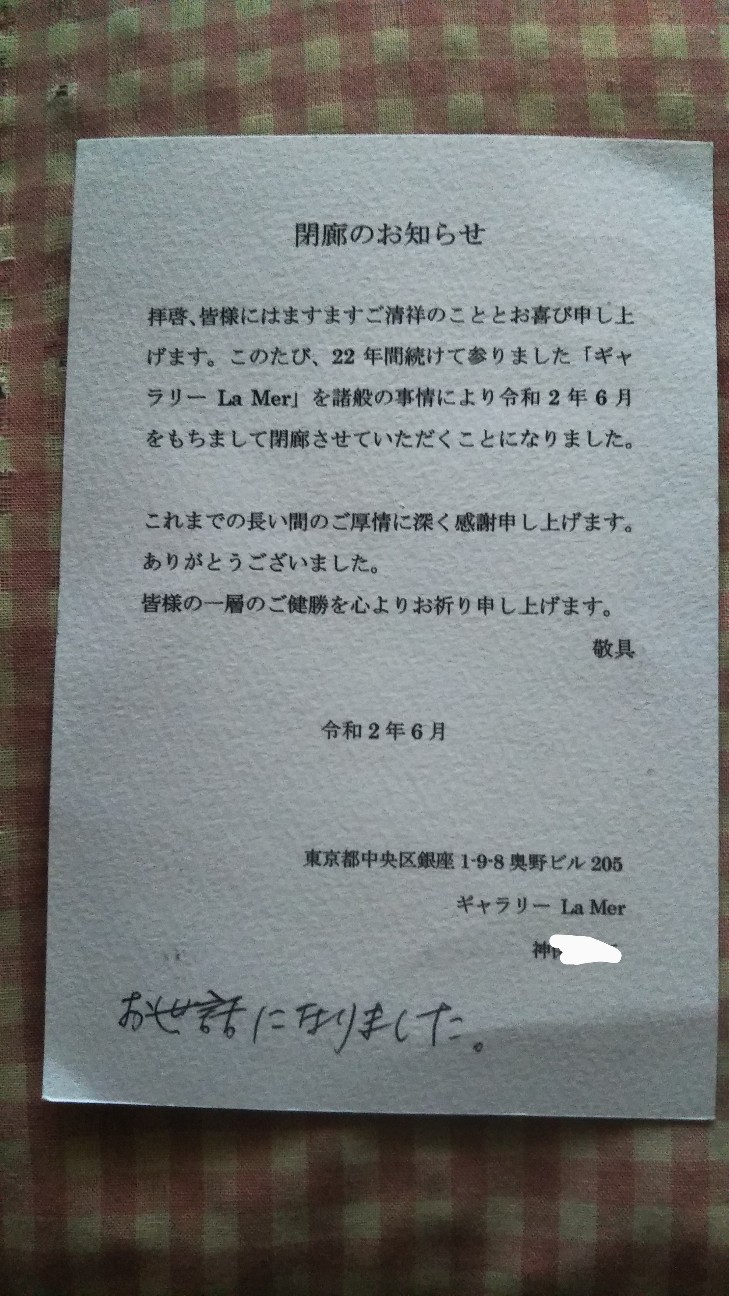 閉廊のお知らせ
拝啓、皆様にはますますご清祥のこととお喜び申し上
げます。このたび、22 年間続けて参りました「ギャ
ラリー La Mer」を諸般の事情により令和 2 年 6 月
をもちまして閉廊させていただくことになりました。
これまでの長い間のご厚情に深く感謝申し上げます。
ありがとうございました。
皆様の一層のご健勝を心よりお祈り申し上げます。
敬具
令和 2 年 6 月
東京都中央区銀座 1-9-8 奥野ビル 205
ギャラリー La Mer
神
お世話になりました。